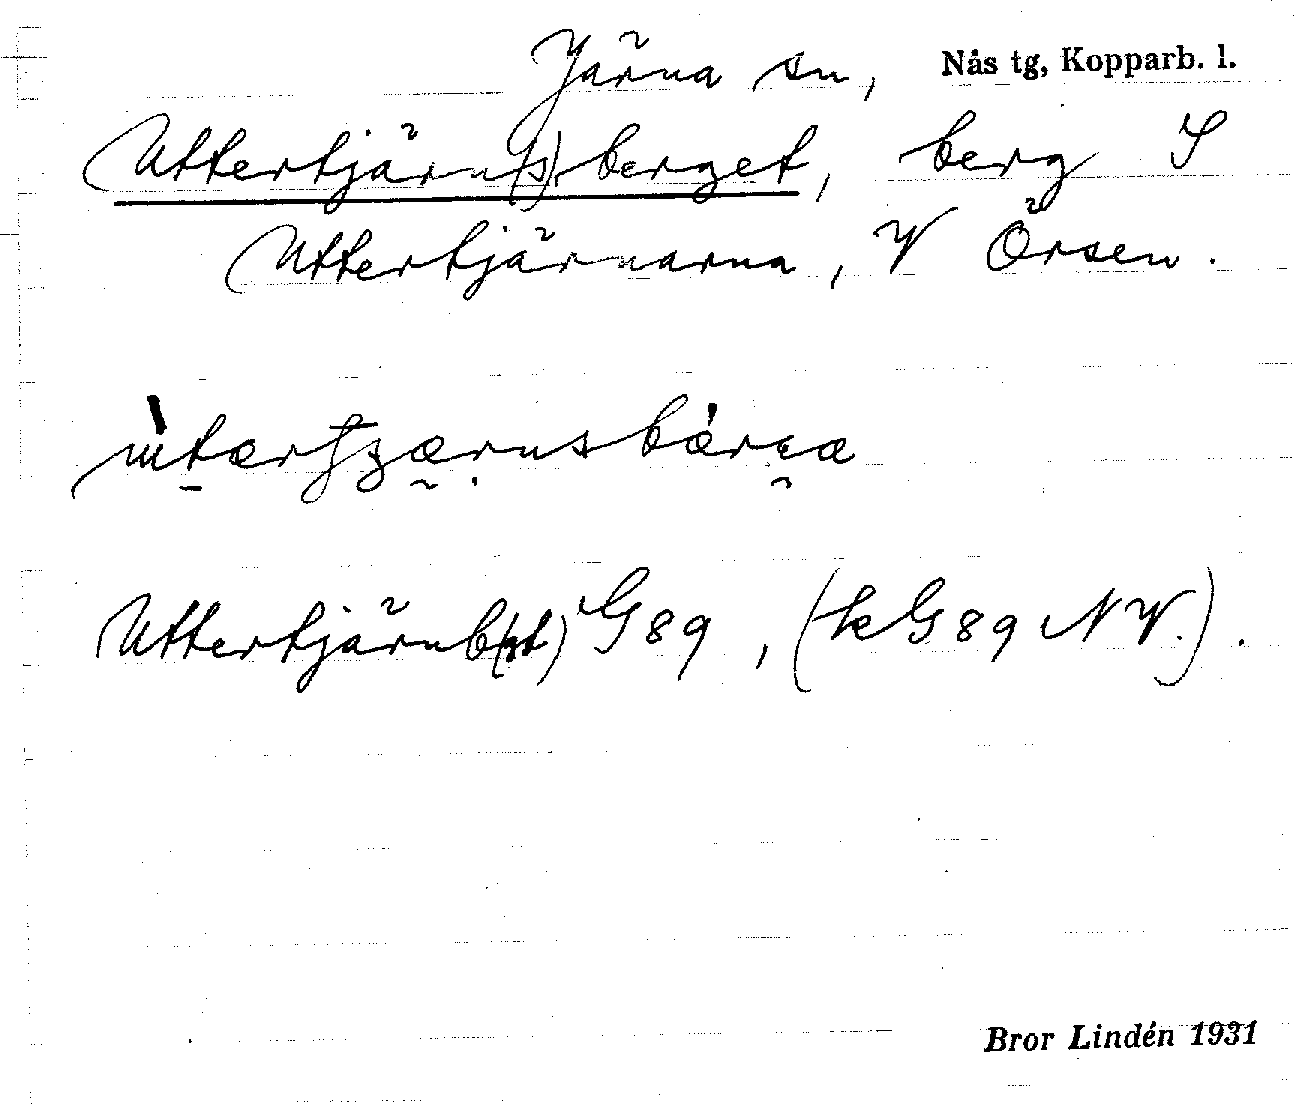 Järna sn, Nås tg, Kopparb. l.
Uttertjärn(s)berget, berg S
Uttertjärnarna, V Örsen.
Uttertjärnb(gt) G89, (k G89 NV.).
Bror Lindén 1931